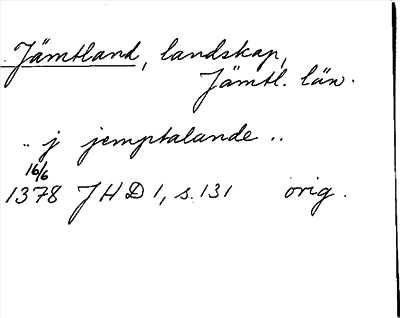 Jämtland, landskap,
Jämtl. län.
.. j jemptalande ..
16/6
1378 JHD 1, s. 131 orig.